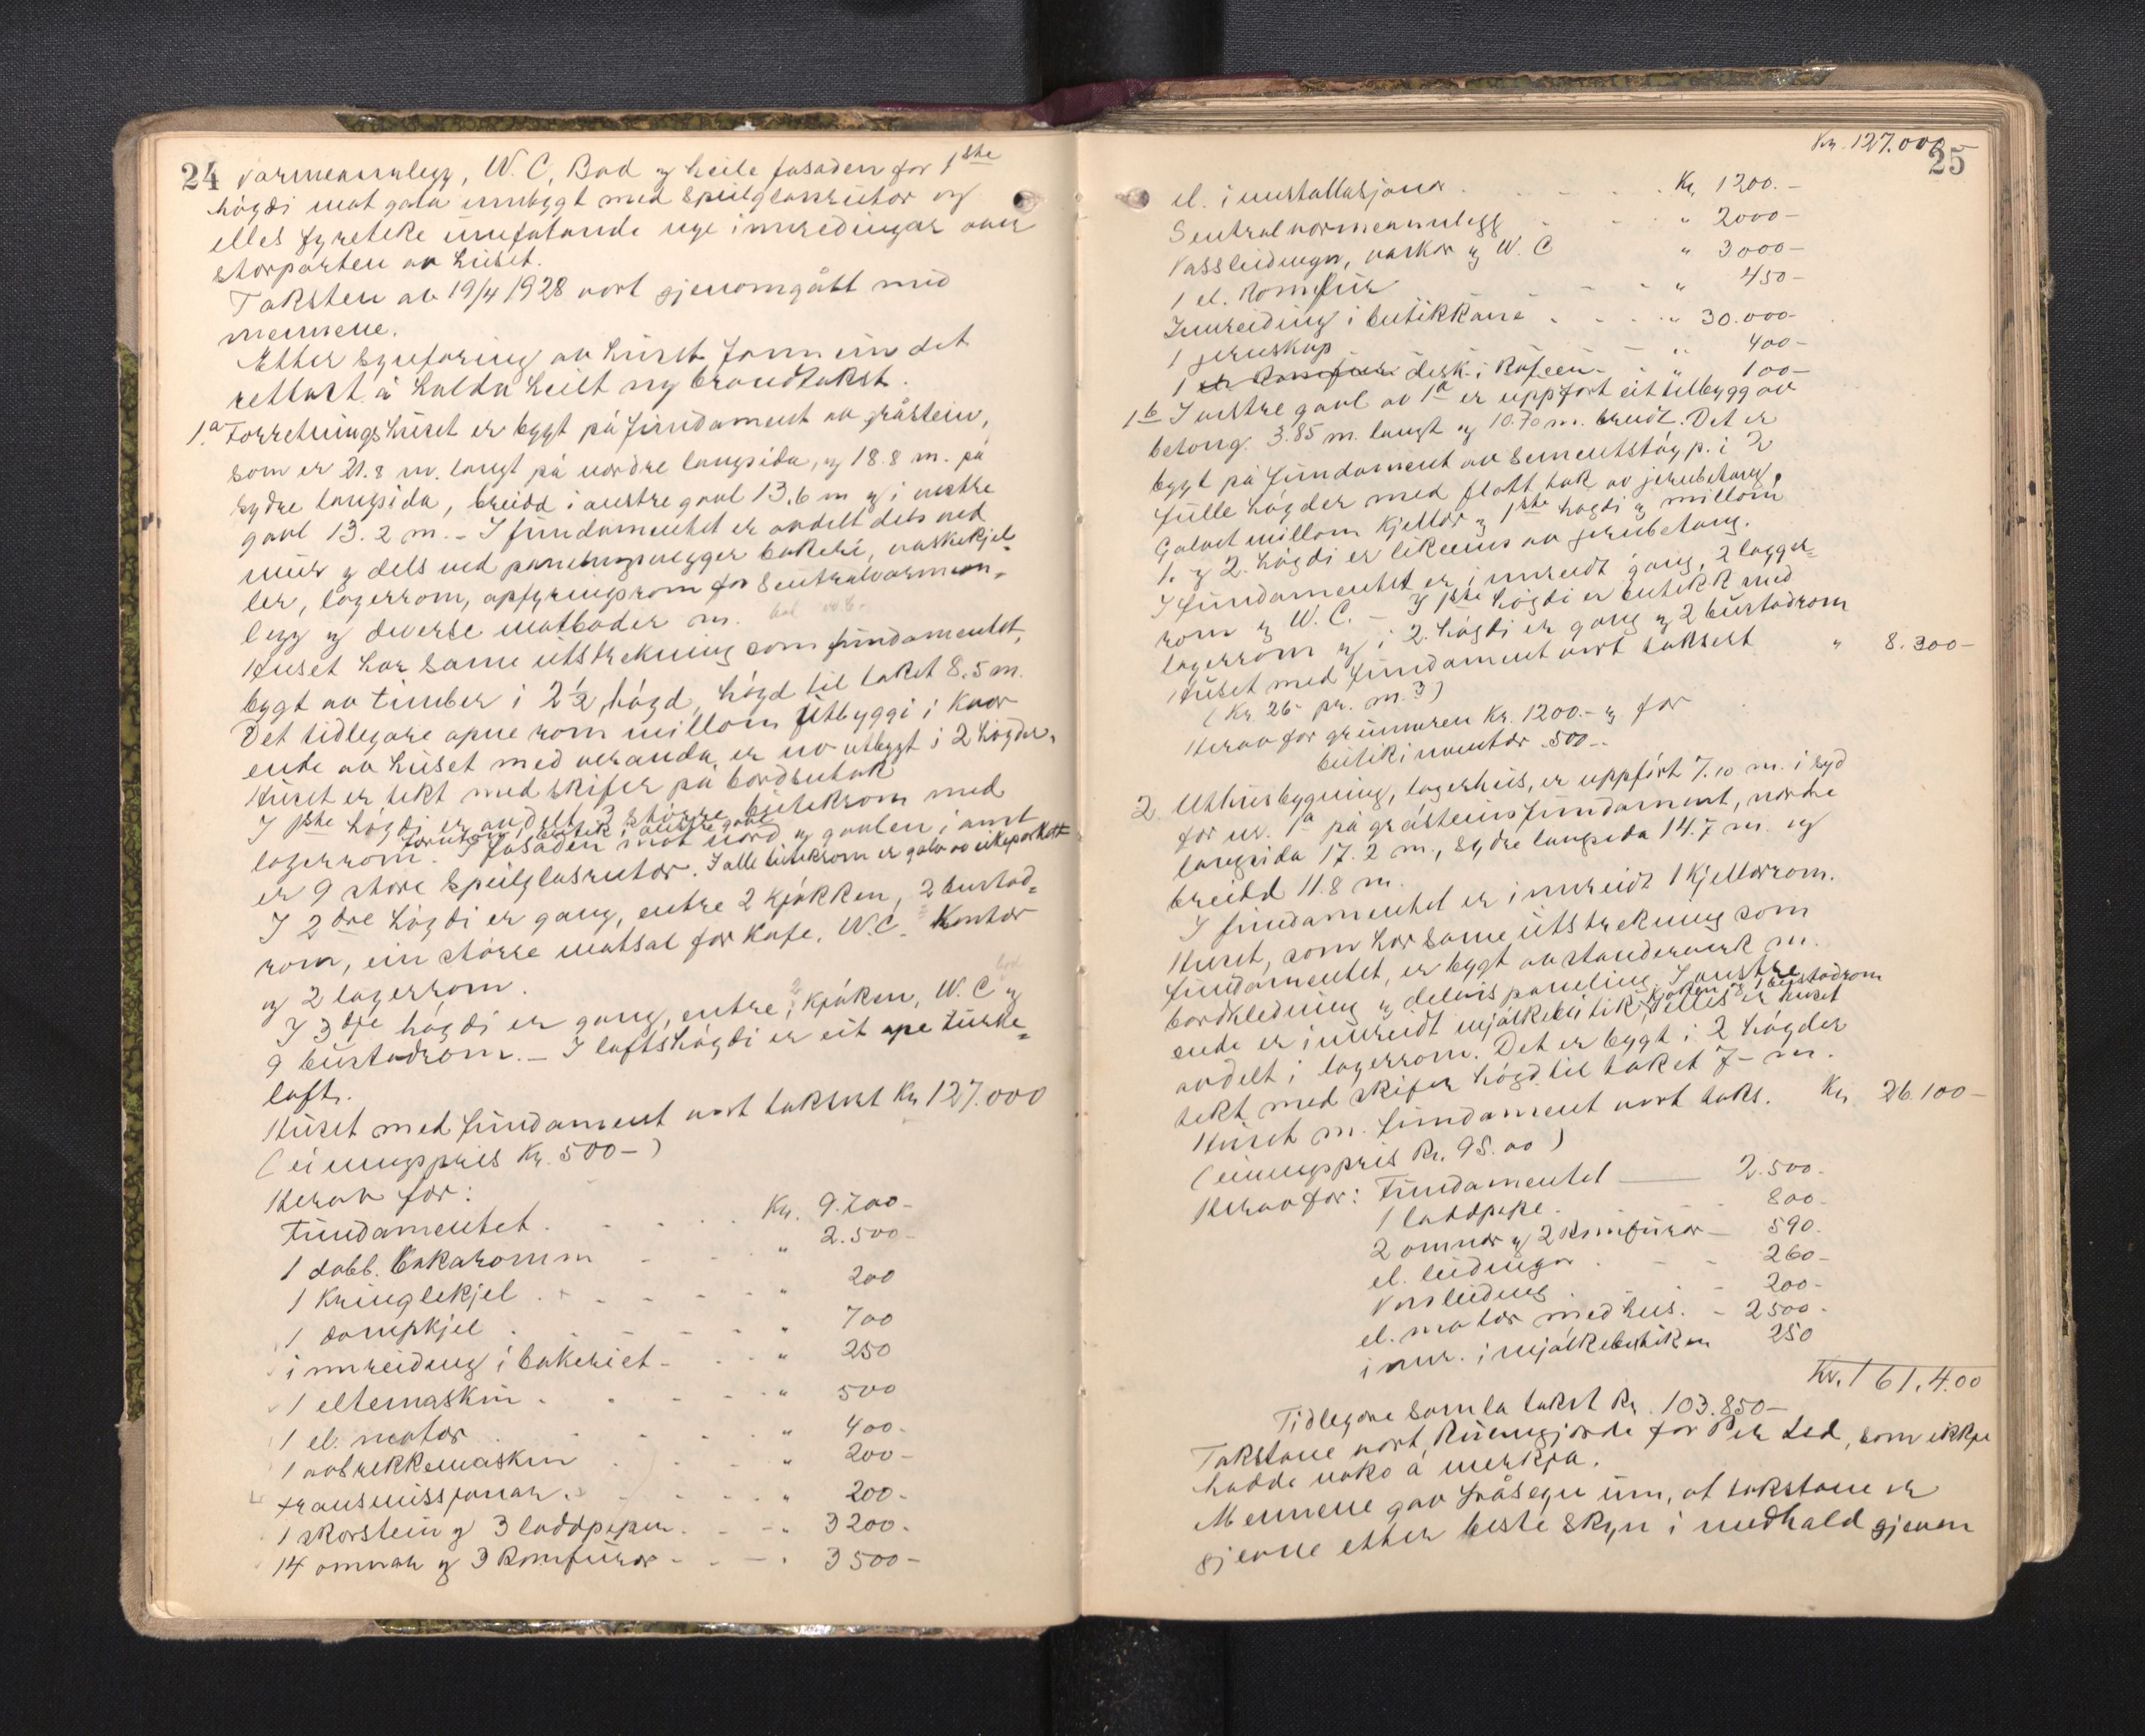 24
varmeannlegg, W.C, Bad og heile fasaden for 1ste
högdi mot gata innbygt med speilglassrutor og
elles fyreteke umfatande nye innreidingar over
storparten av huset.
Taksten av 19/4 1928 vort gjenomgått med
mennene.
Etter synfaring av huset fann ein det
rettast å halda heilt ny brandtakst.
1.a Forretningshuset er bygt på fundament av gråstein,
som er 21.8 m. langt på nordre langsida, og 18.8 m. på
sydre langsida, breidd i austre gavl 13.6 m og i vestre
gavl 13.2 m. - I fundamentet er avdelt dels ved
mur og dels ved panelingsvegger bakeri, vaskekjel-
ler, lagerrom, opfyringsrom for sentralvarmean-
legg og diverse matboder m.
Huset har same utstrekning som fundamentet,
bygt av timber i 2½ högd, högd til taket 8.5 m.
Det tidlegare apne rom millom utbyggi i kvar
ende av huset med veranda, er no utbygt i 2 högder.
Huset er tekt med skifer på bordsutak
I 1ste högdi er avdelt 3 större butikrom med
forutom 1 butik i austre gavl
lagerrom. I fasaden mot nord og gavlen i aust
er 9 store speilglasrutor. I alle butikrom er golv av eikeparkett
I 2dre högdi er gang, entre 2 kjökken, 2 bustad-
rom, ein större matsal for kafe, W.C. Kontor
og 2 lagerrom.
I 3dje högdi er gang, entre, 2 kjöken, W.C og bad
9 bustadrom. - I loftshögdi er eit ope turke-
loft.
Huset med fundament vart taksert Kr 127.000
(einingspris Kr. 500-)
Herav for:
Fundamentet . . . . Kr. 9.700-
1 dobb. Bakaromn - - " 2.500-
1 Kringlekjel . - - - " 200
1 dampkjel . - - - " 700
innreiding i bakeriet - . - " 250
1 eltemaskin . . - - - " 500
1 el. motor . . . - . " 400-
1 avbrekkemaskin . . - " 200-
transmissjonar. . - - - " 200-
1 skorstein og 3 laddpipur. . - - " 3200-
14 omnar og 3 Komfurar - . - - . 3500-
Kr. 127.000-
25
el. innstallasjonar . . . . . Kr. 1200.-
Sentralvarmeannlegg . . . " 2000-
Vassleidingar, vaskar og W.C " 3000-
1 el. Komfur - - . " 450-
Innreiding i butikkane . . . . " 30.000-
1 jernskap - " 400-
1 el. Komfur disk i Kafeen. - " 100-
1b I vestre gavl av 1a er uppfört eit tilbygg av
betong 3.85 m. langt og 10.70 m. breidt. Det er
bygt på fundament av sementstöyp. i 2
fulle högder med flatt tak av jernbetong.
Golvet millom kjellar og 1ste högdi og millom
1. og 2. högdi er likeeins av jernbetong.
I fundamentet er innreidt gang, 2 lagger-
rom og W.C. - I 1ste högdi er butikk med
lagerrom og i 2. högdi er gang og 2 bustadrom
Huset med fundament vort taksert " 8.300-
(Kr. 26- pr. m.3)
Herav for grunmuren Kr. 1200.- og for
butikinventar 500-.
2 Uthusbygning, lagerhus, er uppfört 7.10 m. i syd
for nr. 1a på gråsteinsfundament, nordre
langsida 17.2 m., sydre langsida 14.7 m. og
breidd 11.8 m.
I fundamentet er innreidt 1 kjellarrom.
Huset, som har same utstrekning som
fundamentet, er bygt av standerverk m.
bordkledning og delvis paneling. I austre
ende er innreidt mjölkebutik, kjöken og 1 bustadrom elles er huset
avdelt i lagerrom. Det er bygt i 2 högder
tekt med skifer högd til taket 7- m.
Huset m. fundament vort taks. Kr. 26.100-
(einingspris Kr. 95.00)
Herav for: Fundamentet 2.500.
1 laddpipe. - 800-
2 omnar og 2 Komfurar - 590.
el. leidingar . - - 260-
Vassleiding . - - 200-
el. motor med hus. - 2500-
innr. i mjölkebutiken 250
Kr. 161.400
Tidlegare samla takst Kr. 103.850-
Takstane vort kunngjorde for Per Lid, som ikkje
hadde noko å merkja.
Mennene gav fråsegn um, at takstane er
gjevne etter beste skyn i medhald gjenom